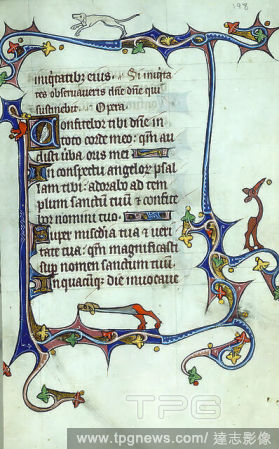 198
iniq̄tatib; eius. Si iniq̄ta
tes obseruaueris dn̄e dn̄e quis
sustinebit. Opera.
Confitebor tibi dn̄e in
toto corde meo: qm̄ au
disti uba oris mei
In conspectu angelor psal
lam tibi: adorabo ad tem
plum sanctū tuū & confite
bor nomini tuo.
Super misc̄dia tua & ueri
tate tua: qm̄ magnificasti
sup nomen sanctum tuū.
In quacūq; die inuocaue
TPG
www.tpgnews.com/達志影像